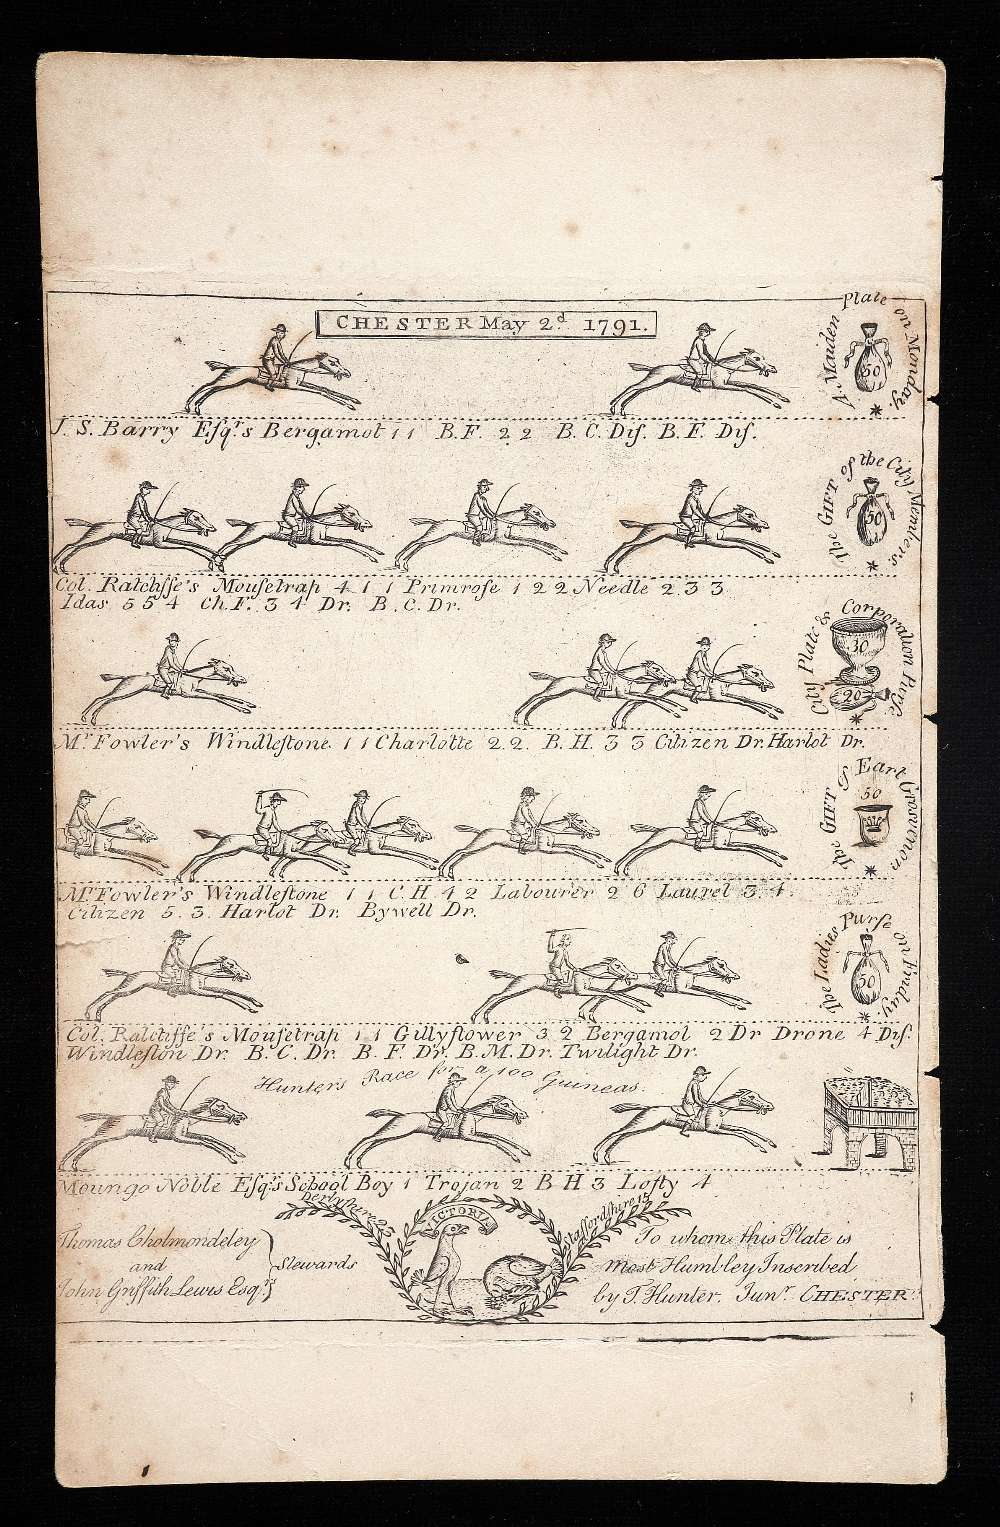 CHESTER May 2d. 1791.
A Maiden Plate on Monday.
50
J. S. Barry Eſqr.s Bergamot 1 1 B.F. 2 2 B.C. Diſ. B.F. Diſ.
The GIFT of the City Members
50
Col. Ratcliffe's Mouſetrap 4 1 1 Primroſe 1 2 2 Needle 2 3 3
Idas 5 5 4 Ch.F. 3 4 Dr. B.C. Dr.
City Plate & Corporation Purſe.
30
20
Mr. Fowler's Windleſtone 1 1 Charlotte 2 2. B.H. 3 3 Citizen Dr. Harlot Dr.
The GIFT of Earl Grosvenor
50
Mr. Fowler's Windleſtone 1 1 C.H. 4 2 Labourer 2 6 Laurel 3 4.
Citizen 5. 3. Harlot Dr. Bywell Dr.
The Ladies Purſe on Friday.
50
Col. Ratcliffe's Mouſetrap 1 1 Gillyflower 3 2 Bergamot 2 Dr Drone 4 Diſ.
Windleſton Dr. B.C. Dr. B.F. Dr. B.M. Dr. Twilight Dr.
Hunters Race for a 100 Guineas.
Moungo Noble Eſqr.s School Boy 1 Trojan 2 B H 3 Lofty 4
Derbyſhire 23
VICTORIA
Staffordſhire 15
Thomas Cholmondeley
and
John Griffith Lewis Esqrs.
Stewards
To whom this Plate is
most Humbley Inscribed
by T. Hunter. Junr. CHESTER.